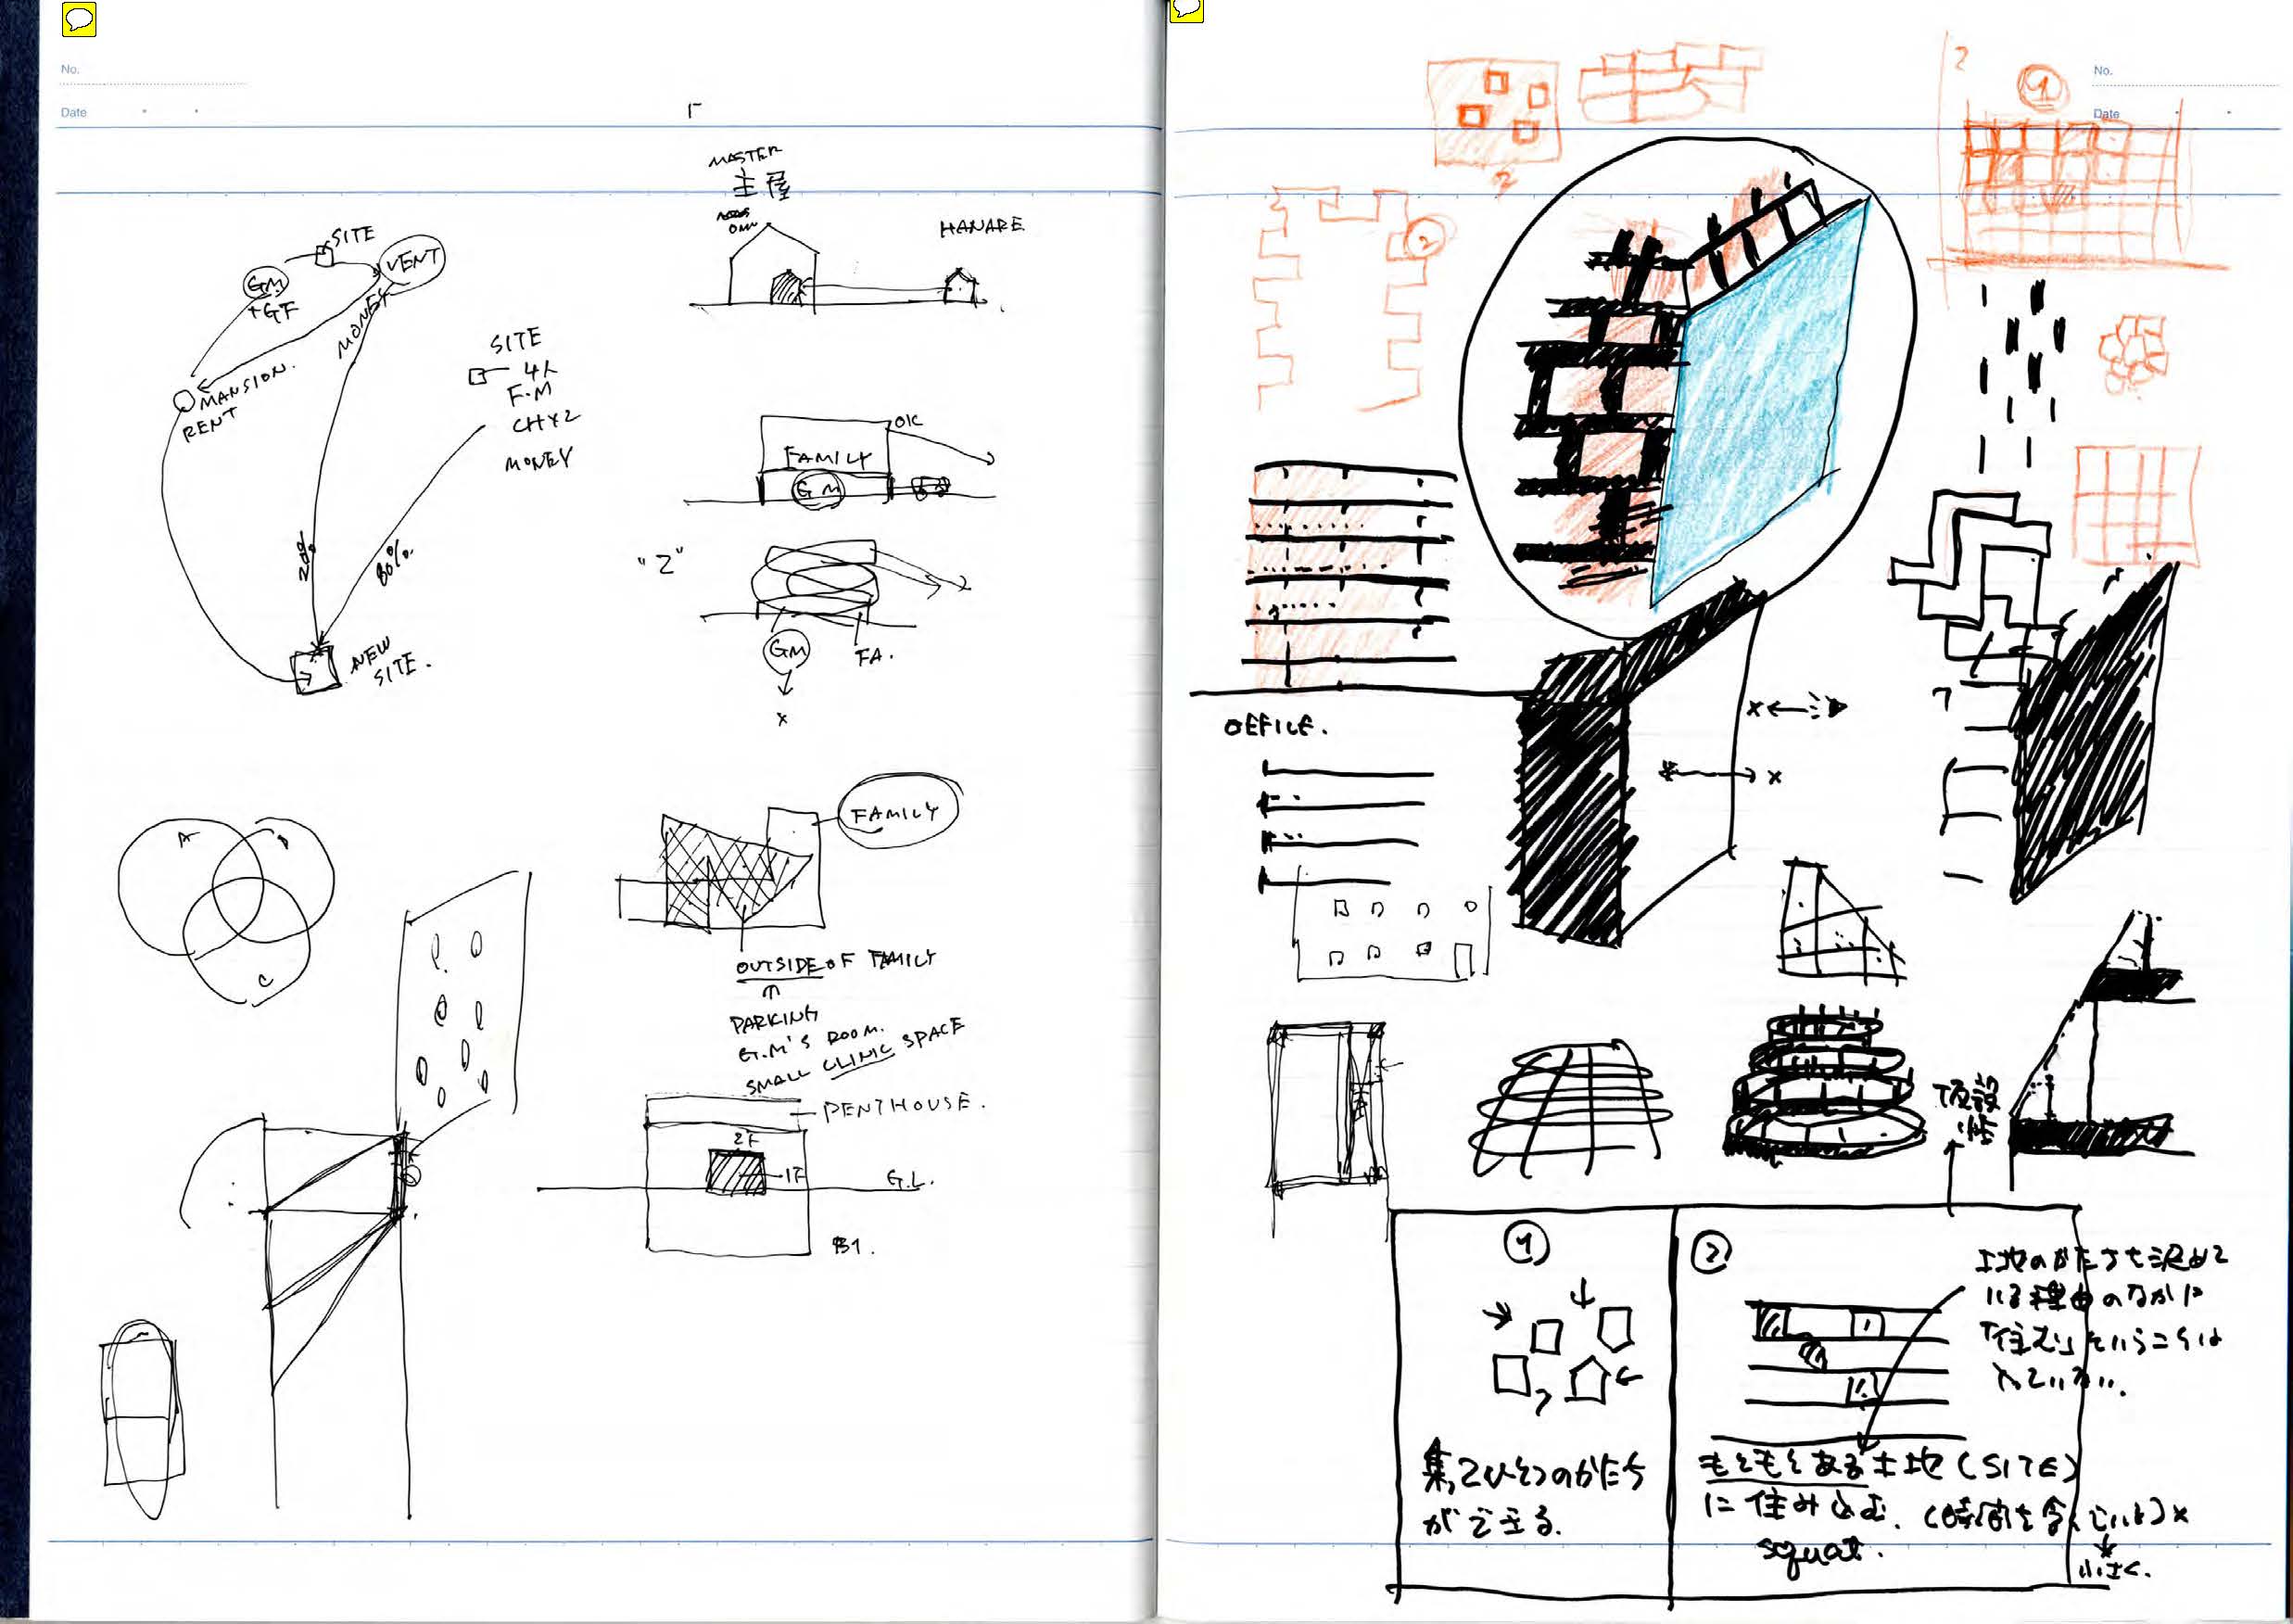 No.
Date
MASTER
主屋
HANARE
SITE
VENT
GM
+GF
MONEY
MANSION.
RENT
SITE
4人
F.M
CHY2
MONEY
20%
80%
NEW
SITE.
OK
FAMILY
GM
"Z"
GM
FA.
x
A
B
C
FAMILY
OUTSIDE OF FAMILY
PARKING
G.M'S ROOM.
SMALL CLINIC SPACE
PENTHOUSE.
2F
1F
G.L.
B1.
No.
Date
2
1
2
2
OFFICE.
x
x
7
仮設
1
2
土地のかたちを決めて
いる理由のなかに
「住む」ということは
入っていない.
集ってひとつのかたち
ができる.
もともとある土地 (SITE)
に住み込む.
squat.
小さく.